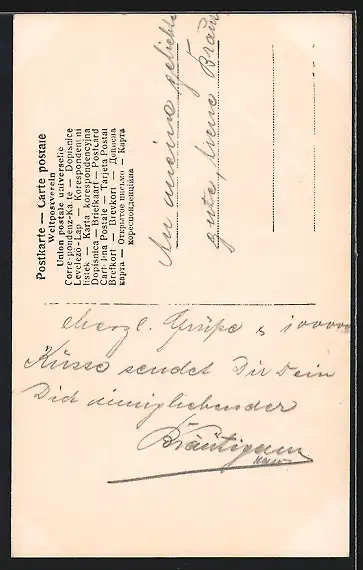 Postkarte — Carte postale
Weltpostverein
Union postale universelle
Corre-pondenz-Ka te — Dopisnice
Levelezo-Lap — Korespondenčni
listek — Karta korespondencyjna
Dopisnica — Briefkaart — Postcard
Cartolina Postale — Tarjeta Postal
Brefkort — Brevkort — Дописна
карта — Открытое письмо — Карта
корреспонденційна
An meine geliebte
gute, treue Braut
herzl. Grüße & 100000
Küsse sendet Dir Dein
Dich innigliebender
Bräutigam